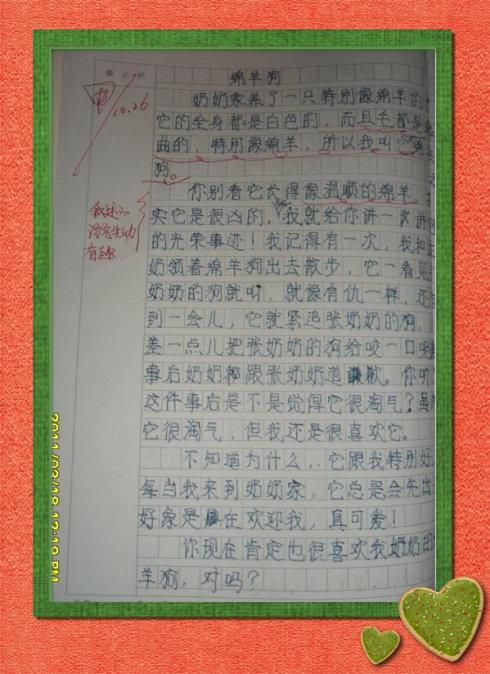 修正栏
绵羊狗
10.26
奶奶家养了一只特别像绵羊的
它的全身都是白色的，而且毛都是
曲的，特别像绵羊，所以我叫它绵
狗。
你别看它长得像温顺的绵羊，
实它是很凶的，我就给你讲一次讲
的光荣事迹！我记得有一次，我和
奶领着绵羊狗出去散步，它一看见
奶奶的狗就叫，就像有仇一样，还
到一会儿，它就紧追张奶奶的狗，
差一点儿把张奶奶的狗给咬一口
事后奶奶和跟张奶奶道歉。你听
这件事后是不是觉得它很淘气？虽
它很淘气，但我还是很喜欢它。
不知道为什么，它跟我特别好，
每当我来到奶奶家，它总是会先出
好象是在欢迎我，真可爱！
你现在肯定也很喜欢我奶奶的
羊狗，对吗？
叙述
语言生动
有趣
2011/03/18 12:19 PM